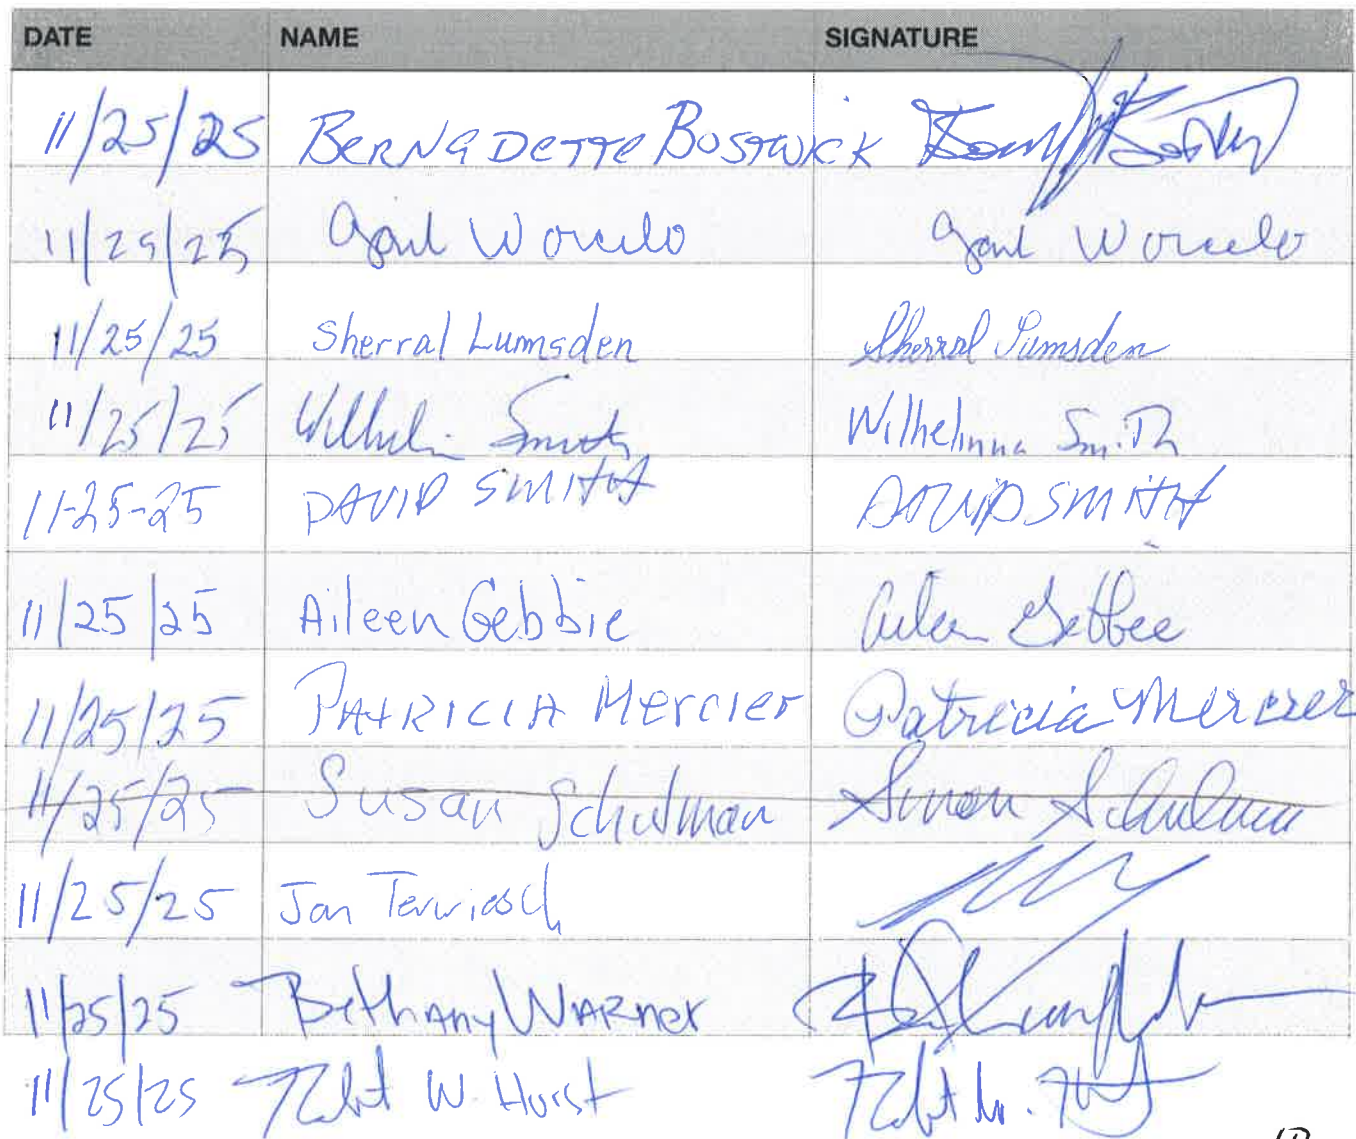 DATE NAME SIGNATURE
11/25/25 BERNADETTE BOSTWICK
11/25/25 Gail Worcelo Gail Worcelo
11/25/25 Sherral Lumsden Sherral Lumsden
11/25/25 Smith Wilhelmina Smith
11-25-25 DAVID SMITH DAVID SMITH
11/25/25 Aileen Gebbie Aileen Gebbie
11/25/25 PATRICIA Mercier Patricia Mercier
11/25/25 Susan Schulman Susan Schulman
11/25/25 Jan
11/25/25 Bethany WARNER
11/25/25 Robert W. Hurst Robert W.